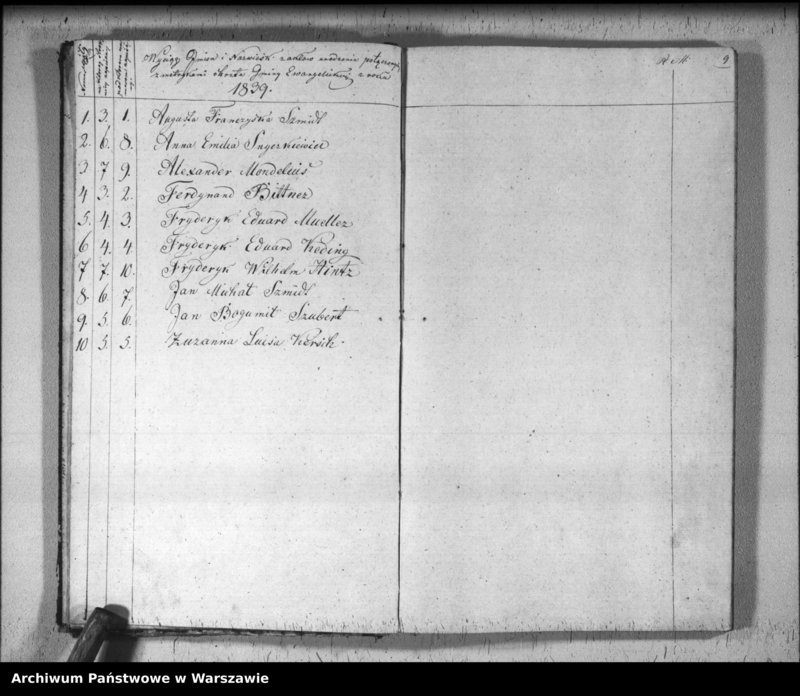 Wyciąg Imion i Nazwisk z aktów urodzenia połączonych
z metrykami chrztu Gminy Ewangelickiej z roku
1839.
1. 3. 1. Augusta Franczyska Szmidt
2. 6. 8. Anna Emilia
3. 7 9. Alexander Mondelius
4 3. 2. Ferdynand Bittner
5. 4. 3. Fryderyk Eduard Mueller
6 4. 4. Fryderyk Eduard Keding
7 7. 10. Fryderyk Wilhelm Hintz
8. 6. 7. Jan Michał Szmidt
9. 5. 6. Jan Bogumił Szubert
10 5. 5. Zuzanna Luisa Kersik
9
Archiwum Państwowe w Warszawie